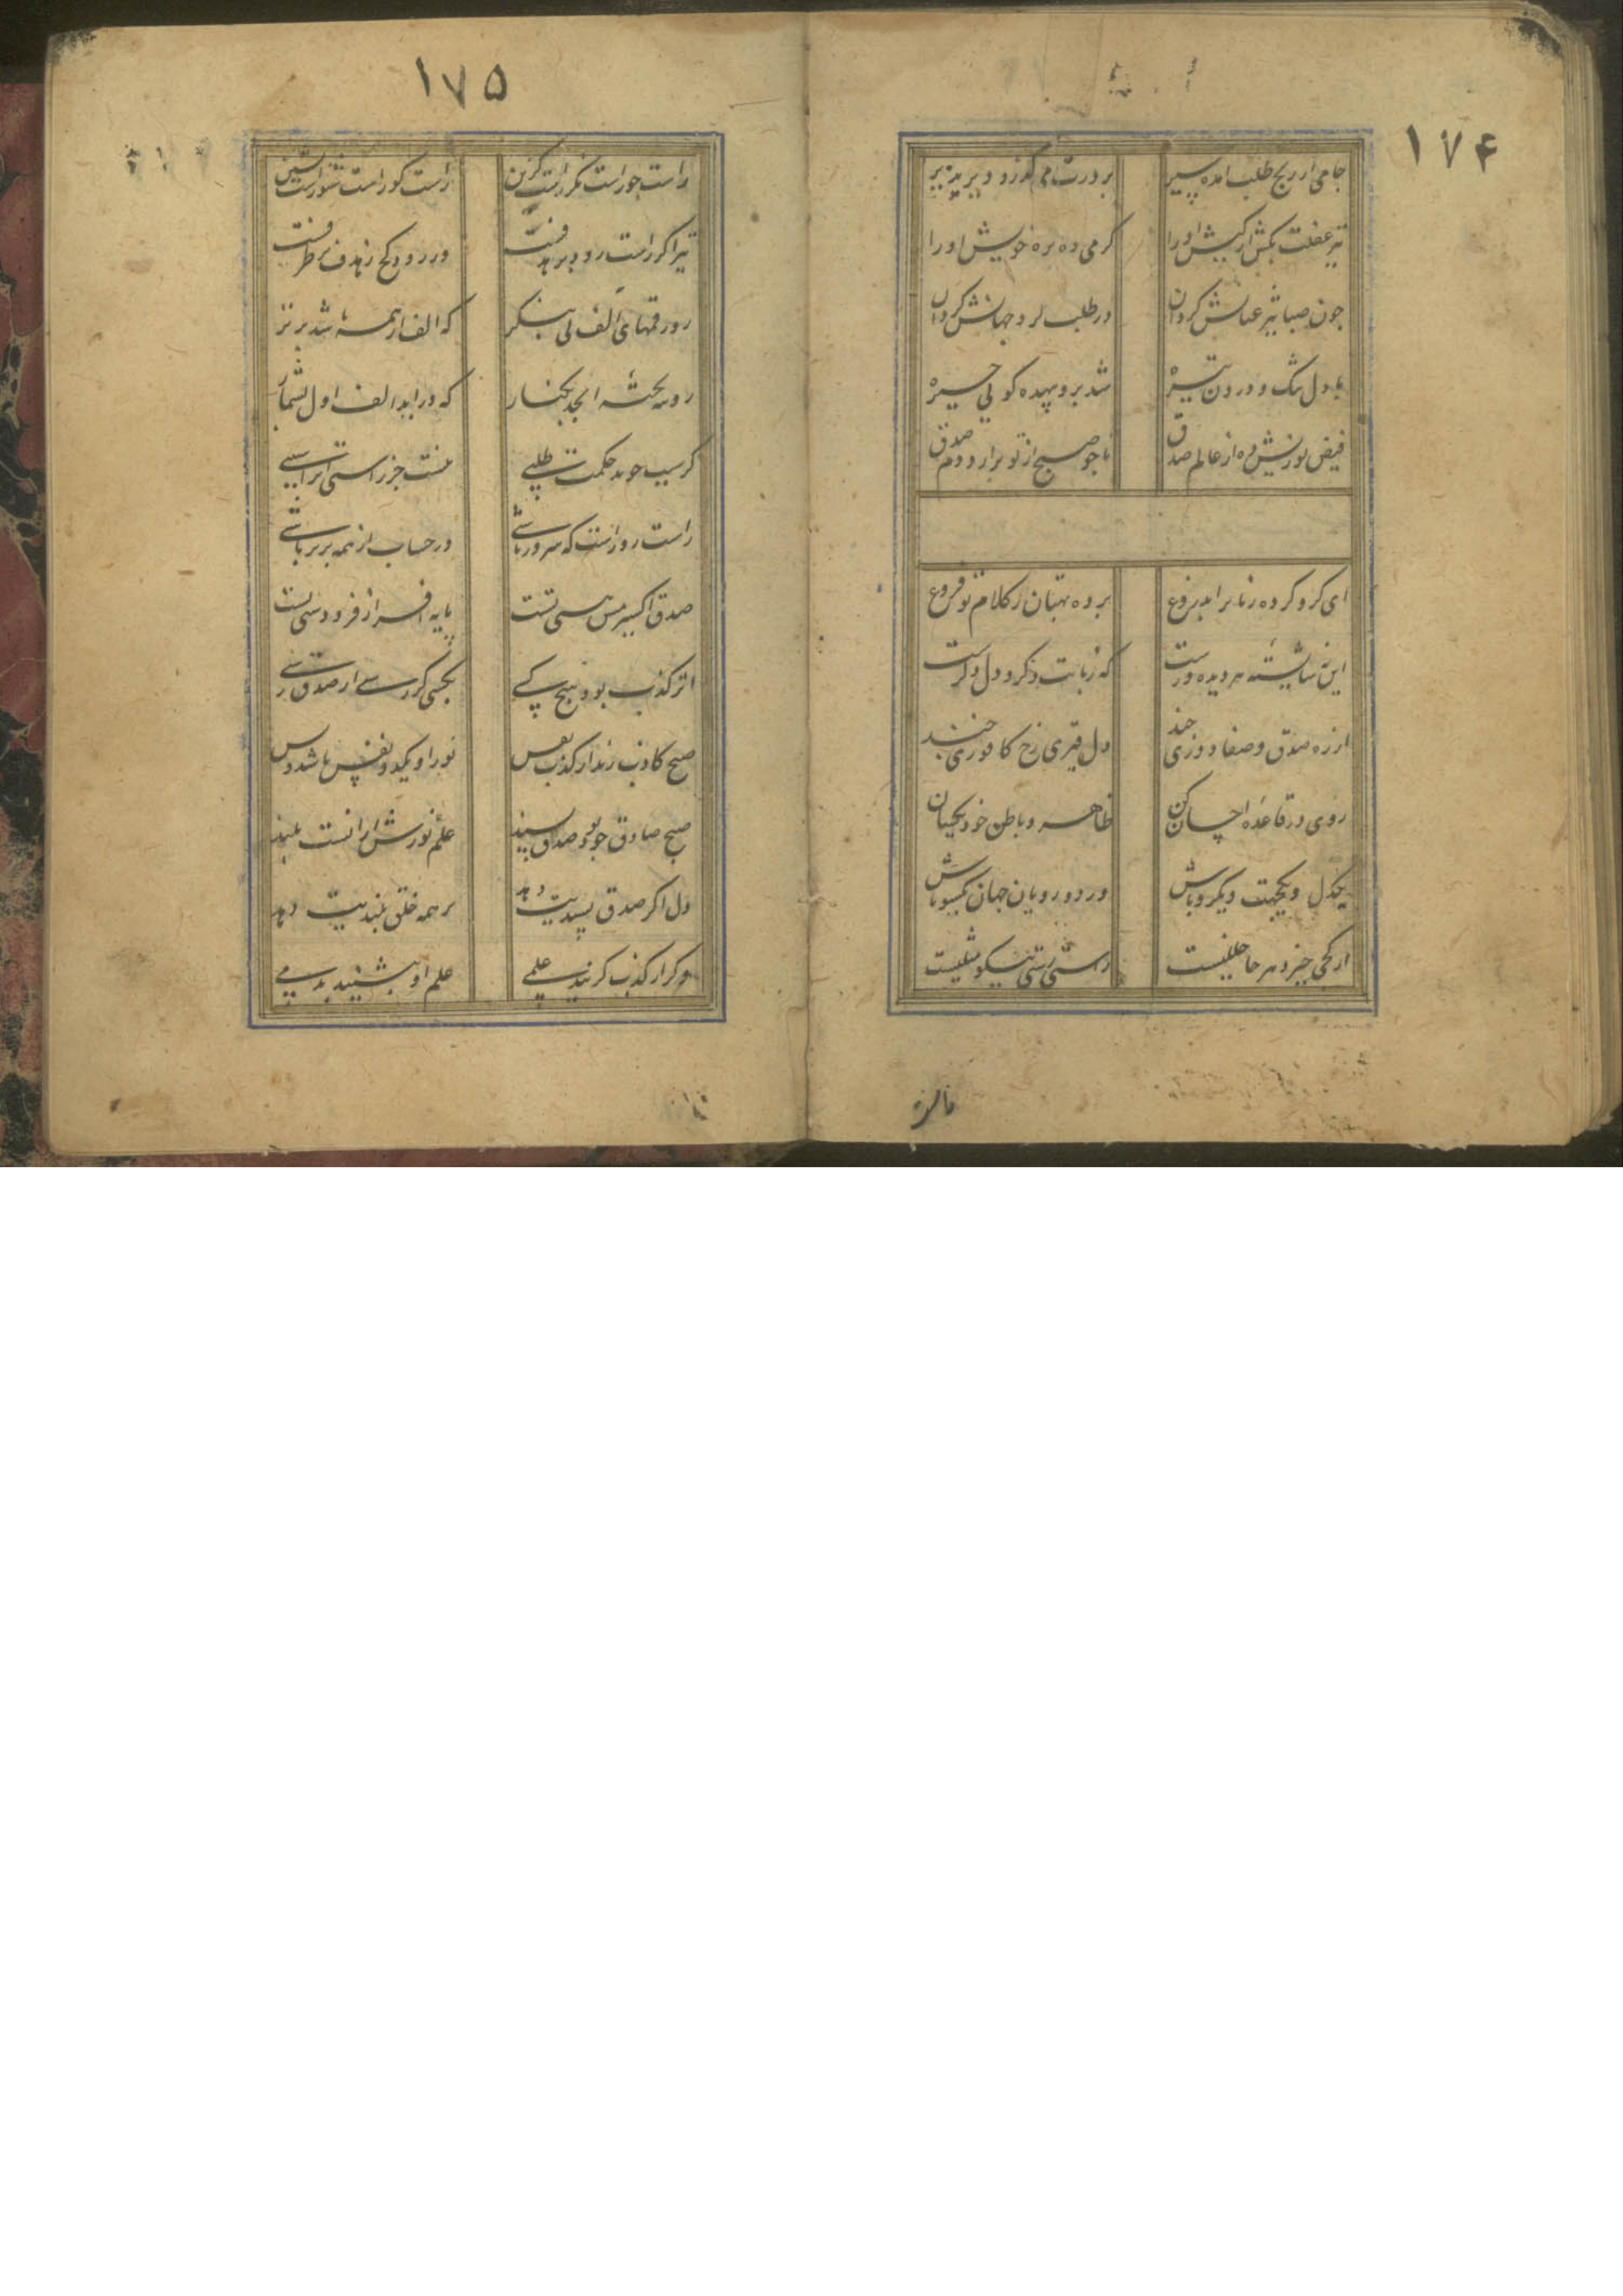 ۱۷۴
جامی از رنج طلب امده پیر
بر درت می گذرد و دیر پذیر
تیر غفلت بکش از کیش او را
گرمی ده بره خویش او را
چون صبا تیز عنانش گردان
در طلب گرد جهانش گردان
با دل تنگ و درون تیره
شد بر و بیهده گویی چیره
فیض نوریش ده از عالم صدق
تا چو صبح از تو برارد دم صدق
ای گرو کرده زبانرا بدروغ
برده بهتان ز کلام تو فروغ
این نه شایسته هر دیده ورست
که زبانت دگر و دل دگرست
از ره صدق و صفا دوری چند
دل قیری رخ کافوری چند
روی در قاعده احسان کن
ظاهر و باطن خود یکسان
یکدل و یکجهت و یکرو باش
وز دورویان جهان یکسو باش
از کجی خیزد هر جا خللیست
راستی رستی نیکو مثلیست
۱۷۵
راست جو راست نگر راست گزین
راست گو راست شنو راست نشین
تیر اگر راست رود بر هدفست
ور رود کج ز هدف بر طرفست
رو رقمهای الف بی بنگر
که الف از همه شد برتر
رو بتخته ابجد بکنار
که در ابد الف اول بشمار
گر سبب جوید حکمت طلبی
نیست جز راستی انرا سببی
راست رو راست که سرور باشی
در حساب از همه برتر باشی
صدق اکسیر مس هستی تست
پایه افراز فرودستی تست
اثر کذب بود هیچ کسی
بکسی گر رسی از صدق رسی
صبح کاذب زند از کذب نفس
نور او یکدو نفس باشد و بس
صبح صادق چو بود صدق پسند
علم نورش ازانست بلند
دل اگر صدق پسندیت دهد
بر همه خلق بلندیت دهد
وگر از کذب گزیند علمی
علم او بنشیند بدمی